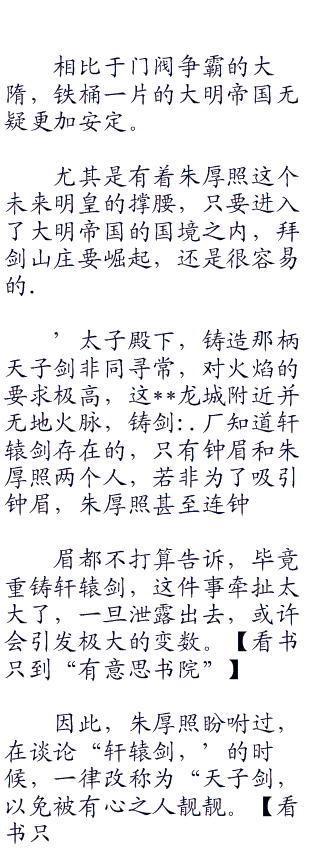 相比于门阀争霸的大
隋，铁桶一片的大明帝国无
疑更加安定。
尤其是有着朱厚照这个
未来明皇的撑腰，只要进入
了大明帝国的国境之内，拜
剑山庄要崛起，还是很容易
的．
’太子殿下，铸造那柄
天子剑非同寻常，对火焰的
要求极高，这**龙城附近并
无地火脉，铸剑:.厂知道轩
辕剑存在的，只有钟眉和朱
厚照两个人，若非为了吸引
钟眉，朱厚照甚至连钟
眉都不打算告诉，毕竟
重铸轩辕剑，这件事牵扯太
大了，一旦泄露出去，或许
会引发极大的变数。【看书
只到“有意思书院”】
因此，朱厚照盼咐过，
在谈论“轩辕剑，’的时
候，一律改称为“天子剑，
以免被有心之人靓靓。【看
书只